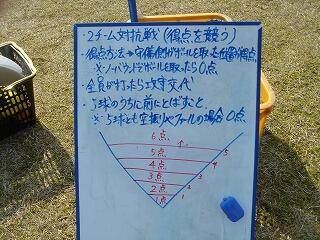 ・2チーム対抗戦(得点を競う)
・得点方法→守備側がボールを取った位置が得点。
※ノーバウンドでボールを取ったら0点。
・全員が打ったら攻守交代
・5球のうちに前にとばすこと。
※5球とも空振りやファールの場合0点。
6点
5点
5
4点
4
3点
3
2点
2
1点
1